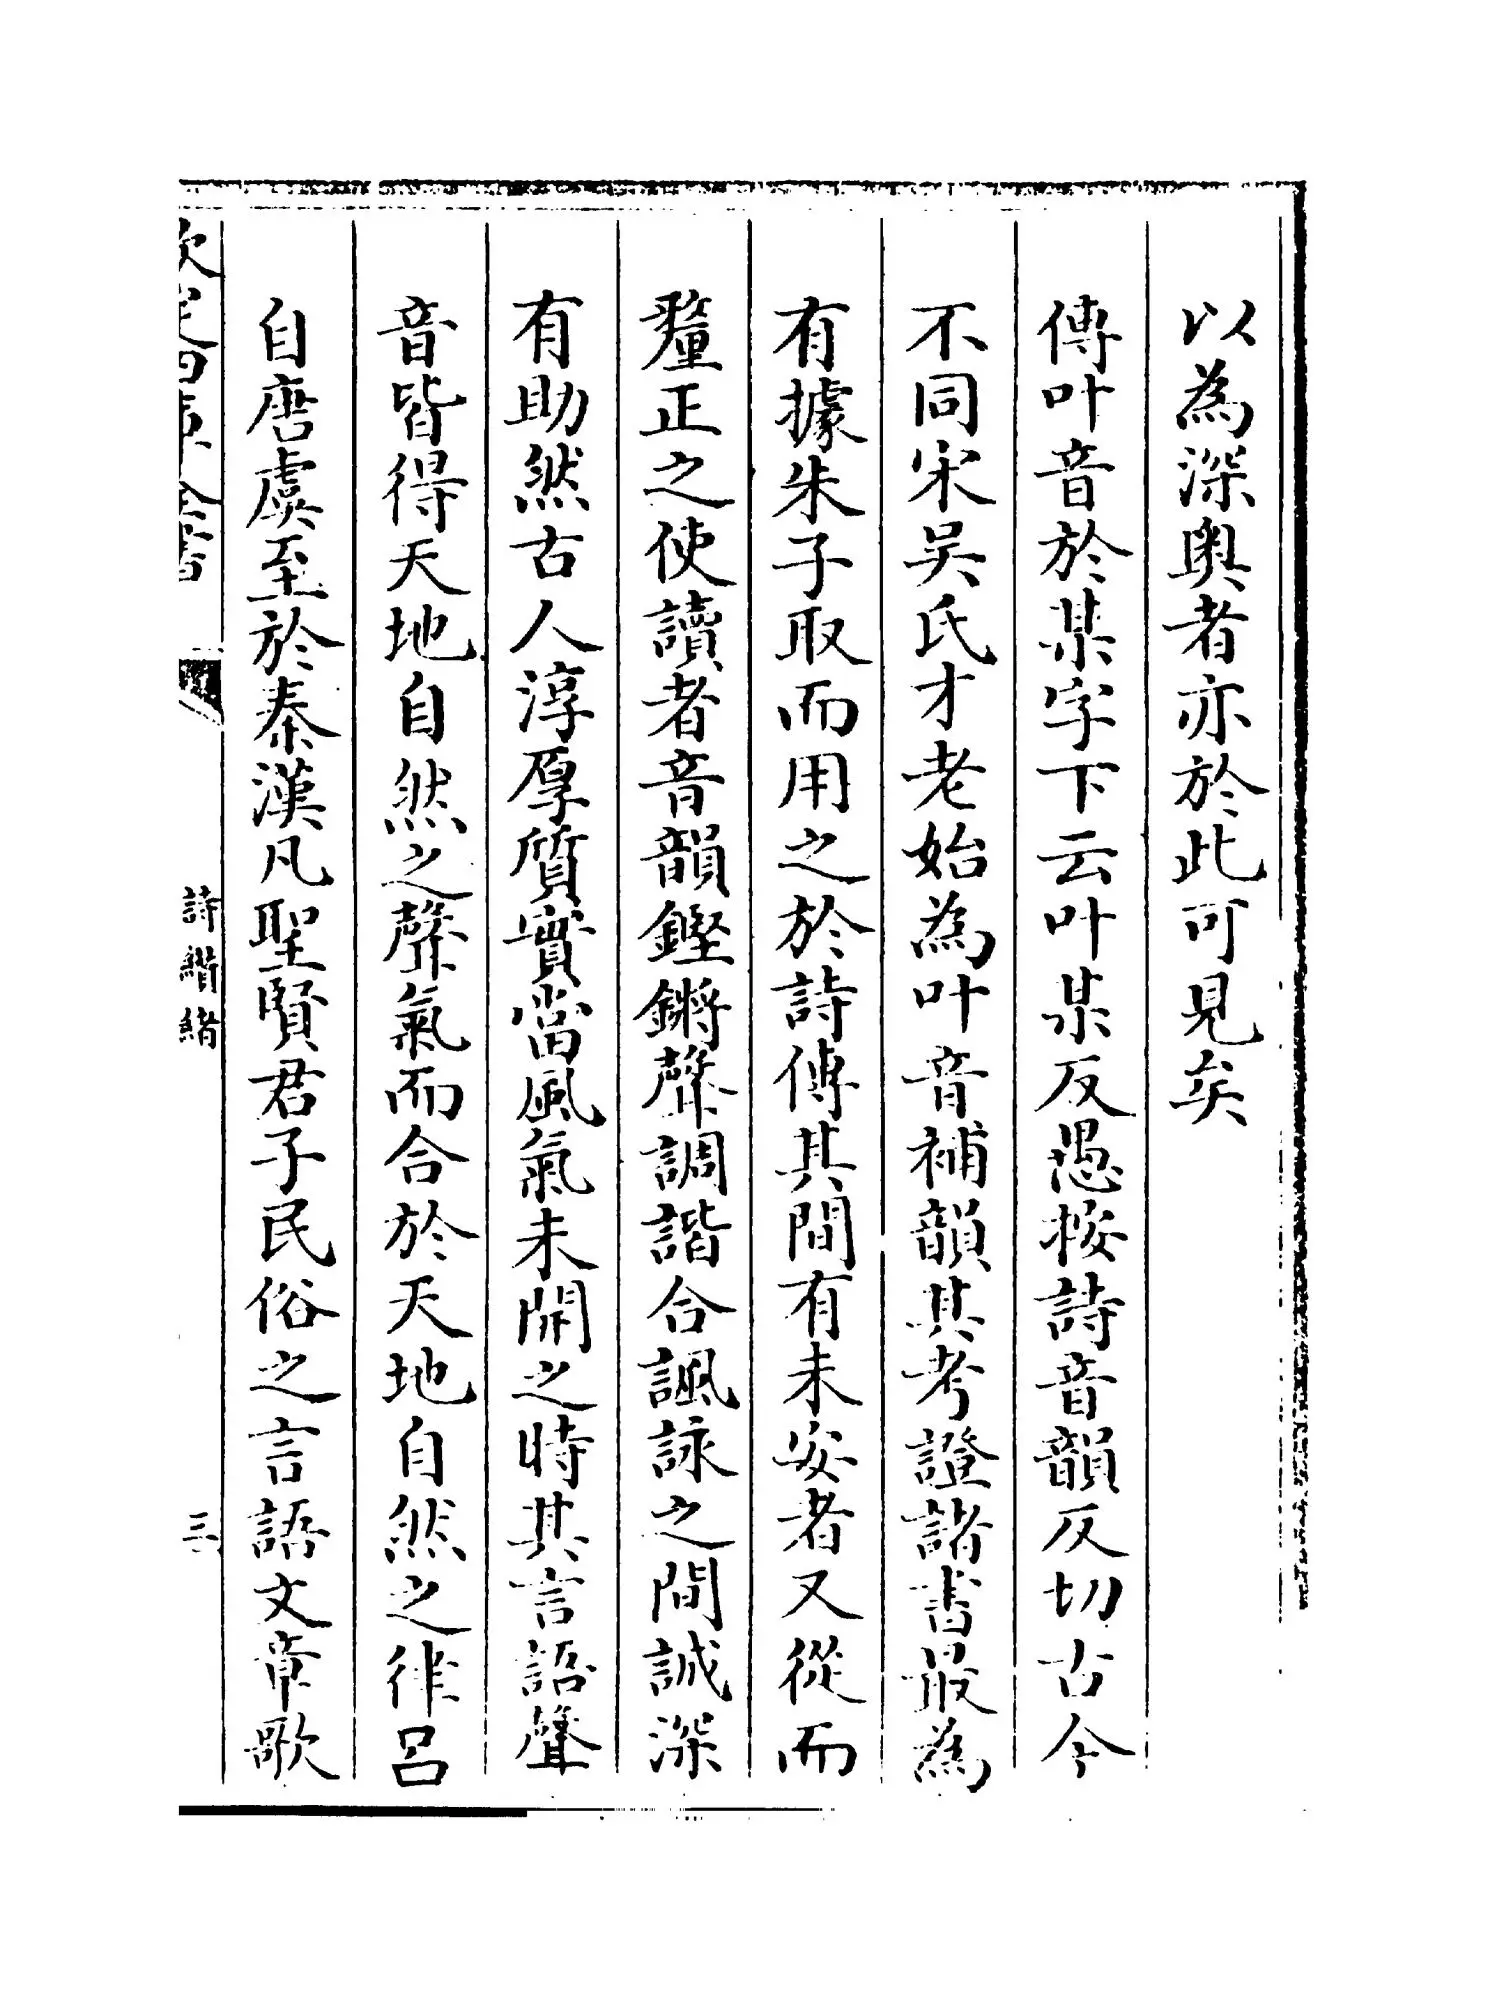 以為深奥者亦於此可見矣
傳叶音於某字下云叶某反愚按詩音韻反切古今
不同宋吴氏才老始為叶音補韻其考證諸書最為
有據朱子取而用之於詩傳其間有未安者又從而
釐正之使讀者音韻鏗鏘聲調諧合諷詠之間誠深
有助然古人淳厚質實當風氣未開之時其言語聲
音皆得天地自然之聲氣而合於天地自然之律吕
自唐虞至於秦漢凡聖賢君子民俗之言語文章歌
欽定四庫全書
詩纘緒
三